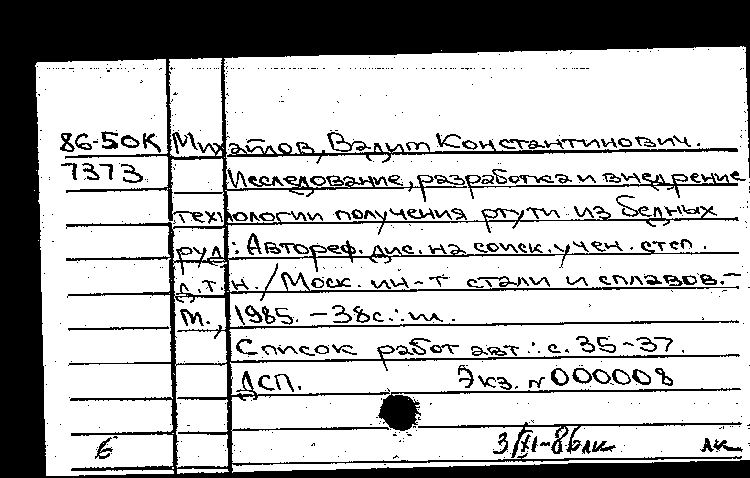 86-50К Михайлов, Вадим Константинович.
7373 Исследование, разработка и внедрение
технологии получения ртути из бедных
руд: Автореф. дис. на соиск. учен. степ.
д.т.н. / Моск. ин-т стали и сплавов. -
М., 1985. - 38с.: ил.
Список работ авт.: с. 35-37.
ДСП. Экз. N 000008
6 3/XI-86 лк лк